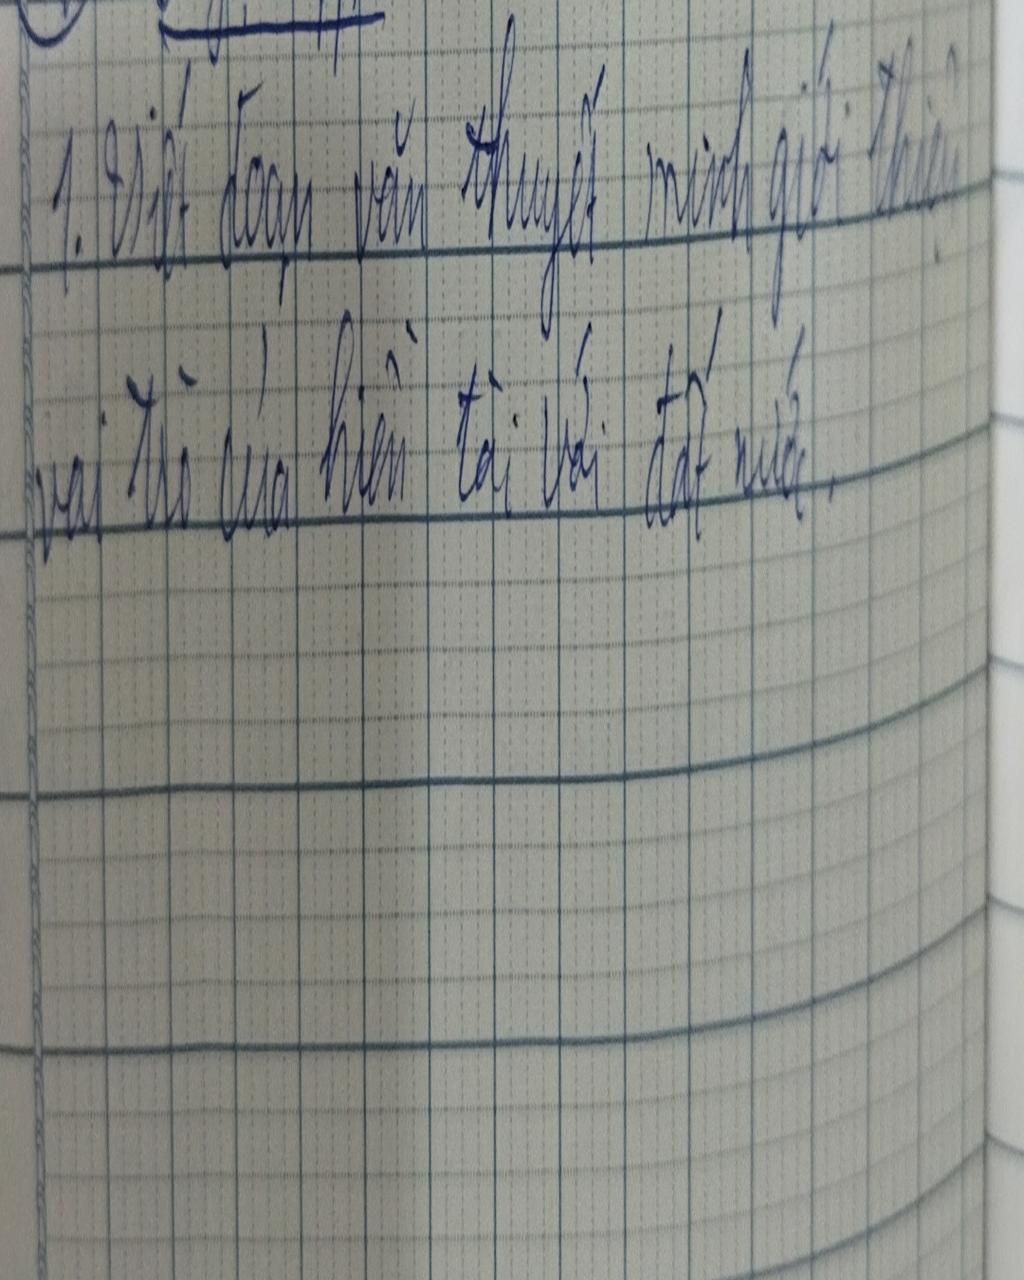 1. Viết đoạn văn thuyết minh giới thiệu
vai trò của hiền tài với đất nước.